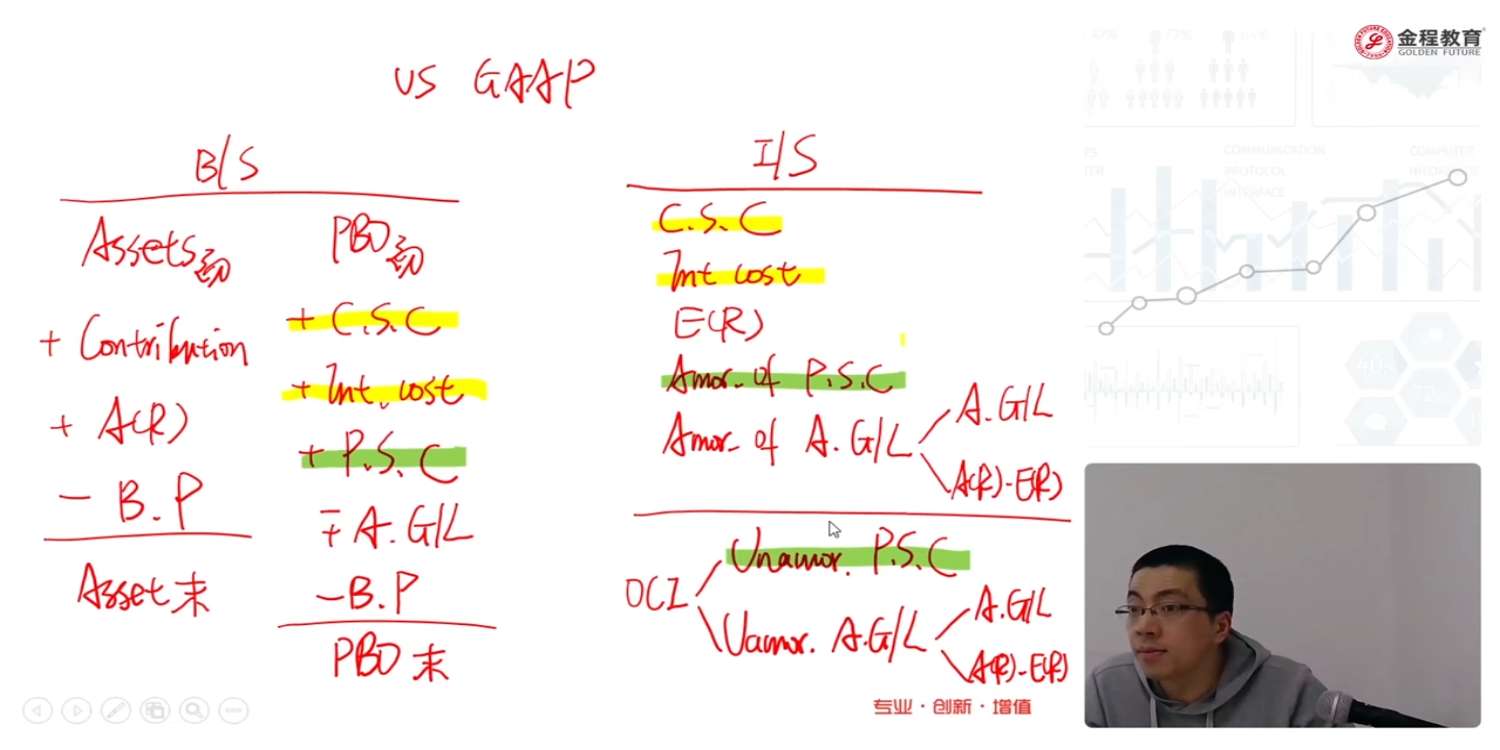 金程教育
GOLDEN FUTURE
US GAAP
B/S
Assets初
+ Contribution
+ A(R)
- B.P
Asset末
PBO初
+ C.S.C
+ Int. cost
+ P.S.C
∓ A.G/L
- B.P
PBO末
I/S
C.S.C
Int cost
E(R)
Amor. of P.S.C
Amor. of A.G/L
A.G/L
A(R)-E(R)
OCI
Unamor. P.S.C
Uamor. A.G/L
A.G/L
A(R)-E(R)
专业·创新·增值
COMMUNICATION
PROTOCOL
INTERFACE